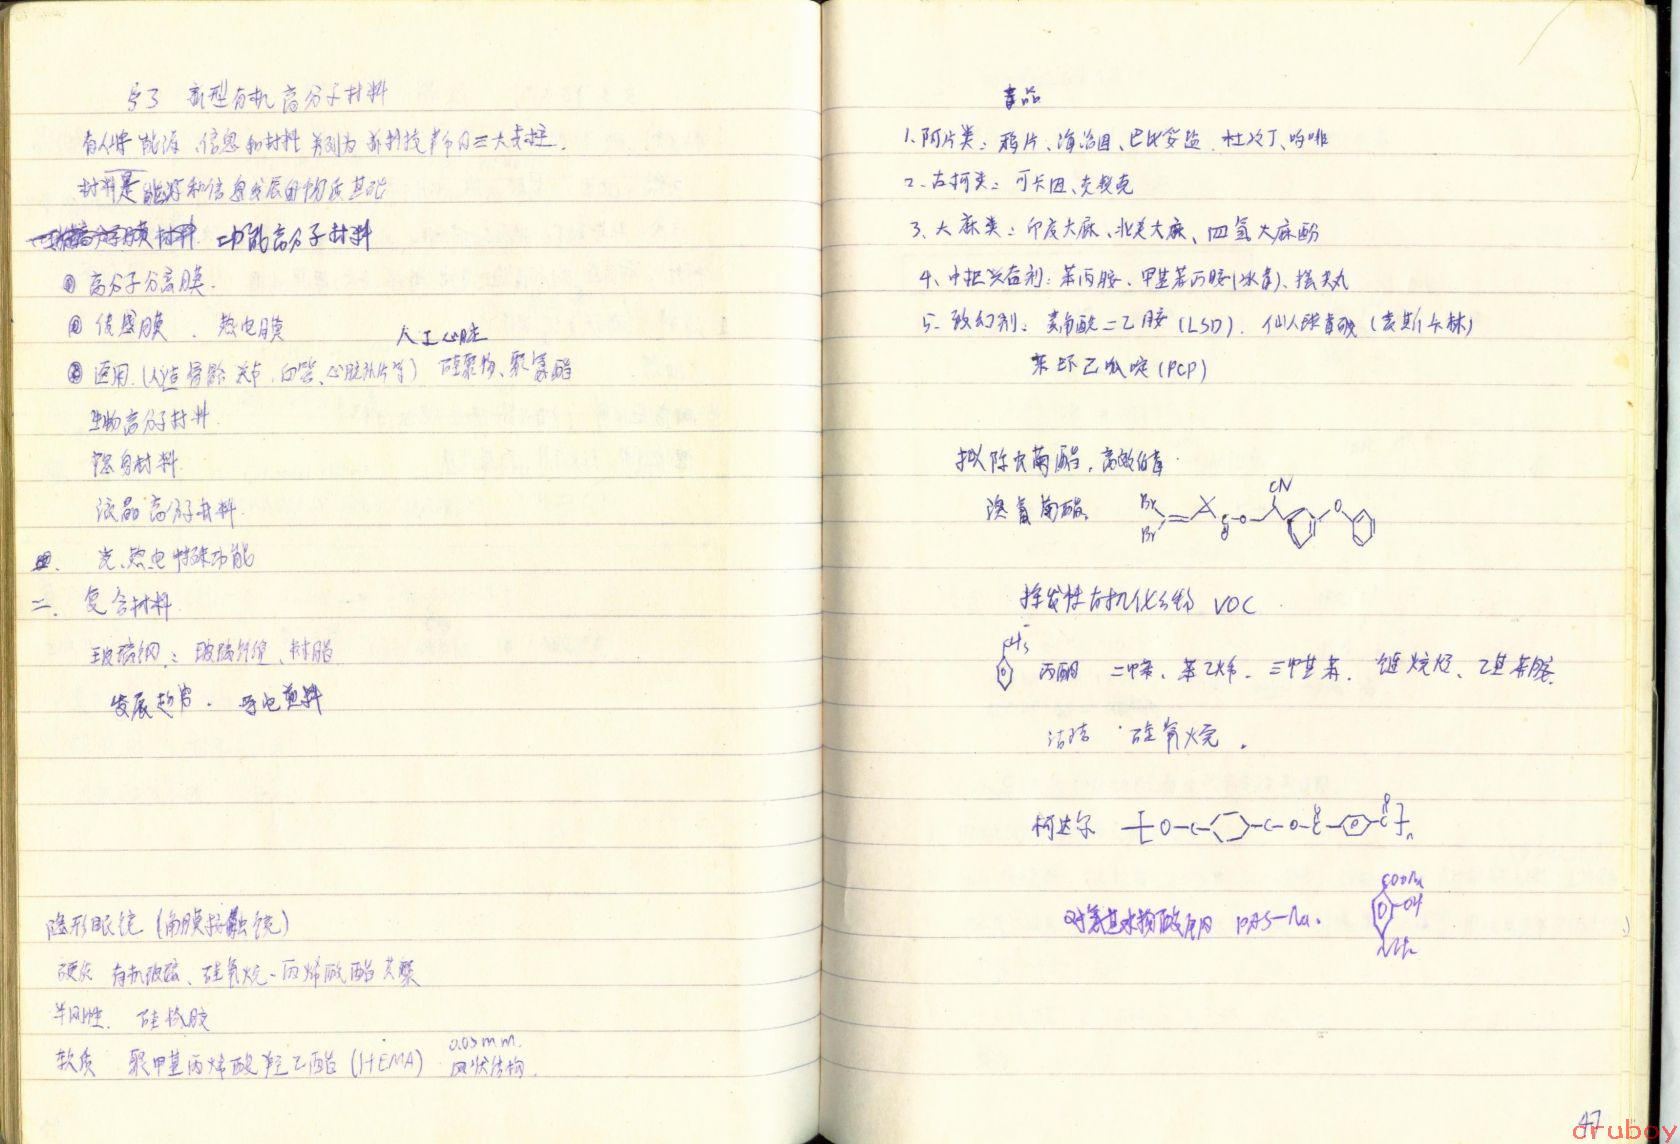 §3 新型有机高分子材料
有人将能源、信息和材料并列为新科技革命的三大支柱.
材料是能源和信息发展的物质基础
功能高分子材料
① 高分子分离膜.
② 传感膜、热电膜
人工心脏
③ 医用.(人造骨骼 关节、血管、心脏瓣片等) 硅聚物、聚氨酯
生物高分子材料
隐身材料.
液晶高分子材料.
四. 光、热、电特殊功能
二. 复合材料
玻璃钢: 玻璃纤维、树脂
发展趋势. 导电塑料
隐形眼镜 (角膜接触镜)
硬质 有机玻璃、硅氧烷-丙烯酸酯共聚
半刚性. 硅橡胶
软质 聚甲基丙烯酸羟乙酯 (HEMA) 0.05mm.
网状结构.
毒品
1. 阿片类: 鸦片、海洛因、巴比妥盐、杜冷丁、吗啡
2. 古柯类: 可卡因、克赖克
3. 大麻类: 印度大麻、北美大麻、四氢大麻酚
4. 中枢兴奋剂: 苯丙胺、甲基苯丙胺(冰毒)、摇头丸
5. 致幻剂: 麦角酸二乙胺 (LSD). 仙人球毒碱 (麦斯卡林)
苯环己哌啶 (PCP)
拟除虫菊酯, 高效低毒.
溴氰菊酯
Br Br O O CN O
挥发性有机化合物 VOC
CH3 丙酮 二甲苯、苯乙烯、三甲基苯、链烷烃、乙基苯胺.
硅氧烷.
柯达尔 [O-C- -C-O-C- -C]n
对氨基水杨酸钠 PAS-Na.
COONa
-OH
NH2
47
druboy